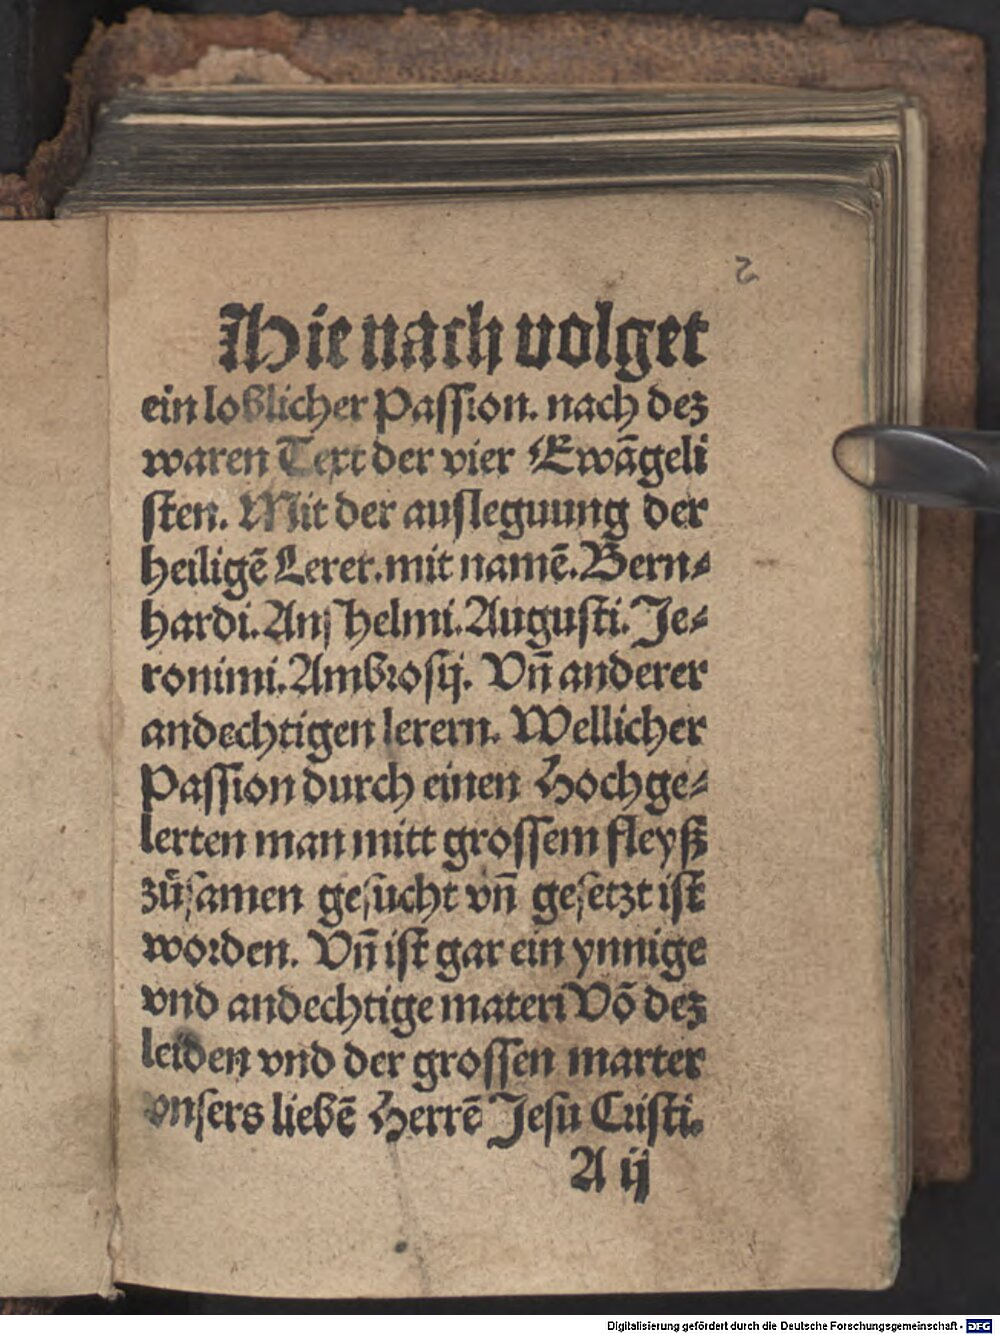 2
Hie nach volget
ein loblicher Passion. nach dez
waren Text der vier Ewãgeli
sten. Mit der auslegunng der
heiligẽ Lerer. mit namẽ. Bern⸗
hardi. Anshelmi. Augusti. Je⸗
ronimi. Ambrosij. Vñ anderer
andechtigen lerern. Wellicher
Passion durch einen Hochge⸗
lerten man mitt grossem fleyß
zůsamen gesucht vñ gesetzt ist
worden. Vñ ist gar ein ynnige
vnd andechtige materi Võ dez
leiden vnd der grossen marter
vnsers liebẽ Herrẽ Jesu Cristi.
A ij
Digitalisierung gefördert durch die Deutsche Forschungsgemeinschaft - DFG